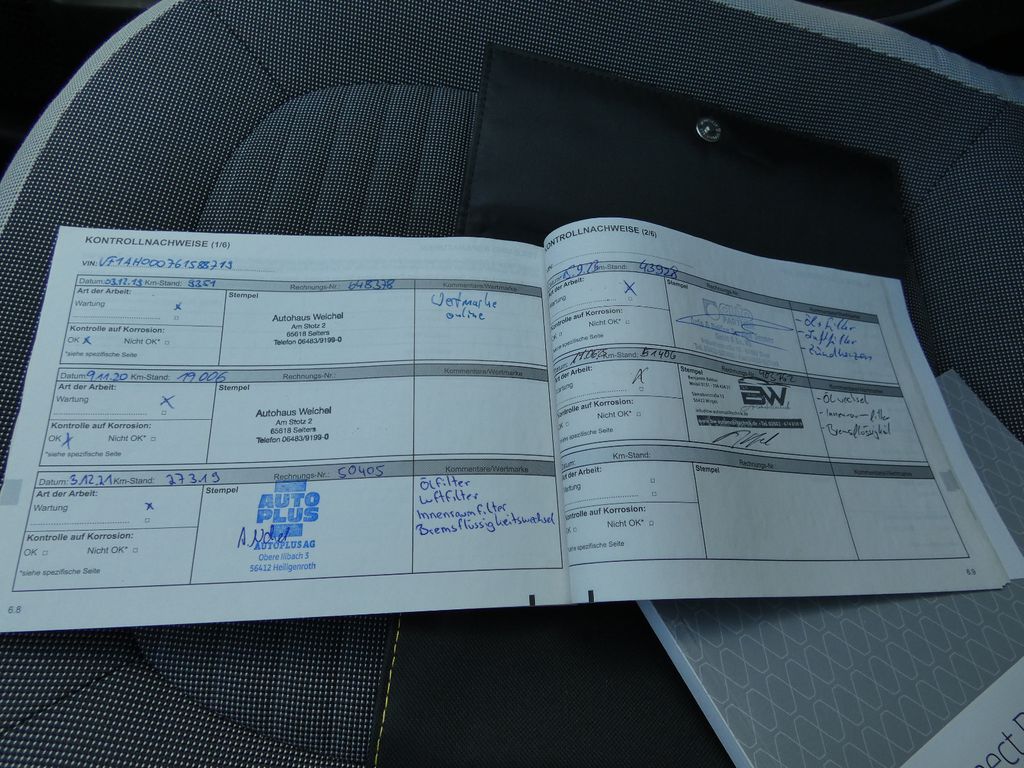 KONTROLLNACHWEISE (1/6)
VIN: VF1AH000761588719
Datum: 03.12.19 Km-Stand: 9351 Rechnungs-Nr.: 648378 Kommentare/Wertmarke
Art der Arbeit:
Wartung x
Kontrolle auf Korrosion:
OK x Nicht OK*
*siehe spezifische Seite
Stempel
Autohaus Weichel
Am Stotz 2
65618 Selters
Telefon 06483/9199-0
Wertmarke
online
Datum: 9.11.20 Km-Stand: 19006 Rechnungs-Nr.: Kommentare/Wertmarke
Art der Arbeit:
Wartung x
Kontrolle auf Korrosion:
OK x Nicht OK*
*siehe spezifische Seite
Stempel
Autohaus Weichel
Am Stotz 2
65618 Selters
Telefon 06483/9199-0
Datum: 3.12.21 Km-Stand: 27319 Rechnungs-Nr.: 50405 Kommentare/Wertmarke
Art der Arbeit:
Wartung x
Kontrolle auf Korrosion:
OK Nicht OK*
*siehe spezifische Seite
Stempel
AUTO
PLUS
AUTOPLUS AG
Obere Illbach 3
56412 Heiligenroth
Ölfilter
Luftfilter
Innenraumfilter
Bremsflüssigkeitswechsel
6.8
KONTROLLNACHWEISE (2/6)
Km-Stand: 43928 Rechnungs-Nr.
Art der Arbeit:
Wartung x
Kontrolle auf Korrosion:
OK Nicht OK*
*siehe spezifische Seite
Stempel
- Ölfilter
- Luftfilter
- Zündkerzen
Km-Stand: 51406 Rechnungs-Nr. Kommentare/Wertmarke
Art der Arbeit:
Wartung
Kontrolle auf Korrosion:
OK Nicht OK*
*siehe spezifische Seite
Stempel
BW
- Ölwechsel
- Innenraumfilter
- Bremsflüssigkeit
Datum: Km-Stand: Rechnungs-Nr. Kommentare/Wertmarke
Art der Arbeit:
Wartung
Kontrolle auf Korrosion:
OK Nicht OK*
*siehe spezifische Seite
Stempel
6.9